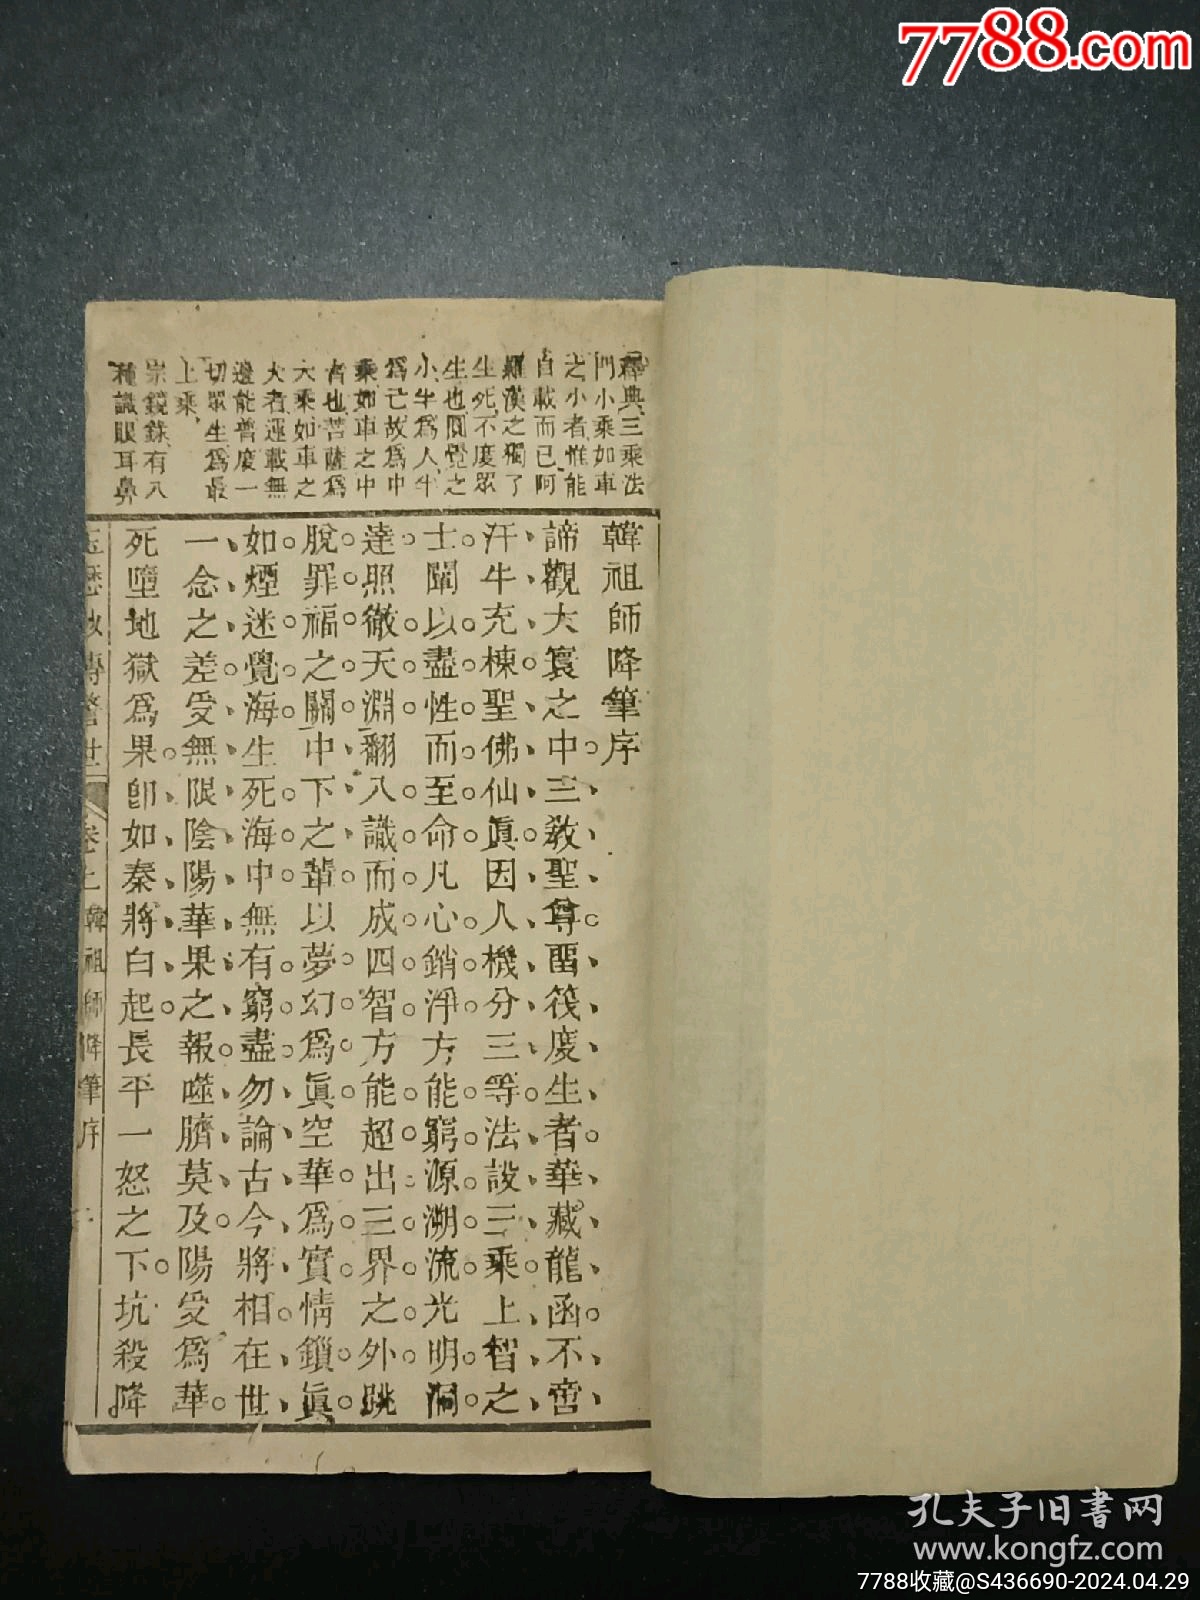 7788.com
釋典三乘法
門小乘如車
之小者惟能
自載而已阿
羅漢之獨了
生死不度眾
生也圓覺之
小牛為人牛
為亡故為中
乘如車之中
者也菩薩為
大乘如車之
大者運載無
邊能普度一
切眾生為最
上乘
宗鏡錄有八
種識眼耳鼻
韓祖師降筆序
諦觀大寰之中三教聖尊畱筏度生者華藏龍函不啻
汗牛充棟聖佛仙眞因人機分三等法設三乘上智之
士聞以盡性而至命凡心銷淨方能窮源溯流光明洞
達照徹天淵翻八識而成四智方能超出三界之外跳
脫罪福之關中下之輩以夢幻爲眞空華爲實情鎖眞
如煙迷覺海生死海中無有窮盡勿論古今將相在世
一念之差受無限陰陽華果之報噬臍莫及陽受爲華
死墮地獄爲果卽如秦將白起長平一怒之下坑殺降
玉歷鈔傳警世 卷上 韓祖師降筆序
孔夫子旧書网
www.kongfz.com
7788收藏@S436690-2024.04.29